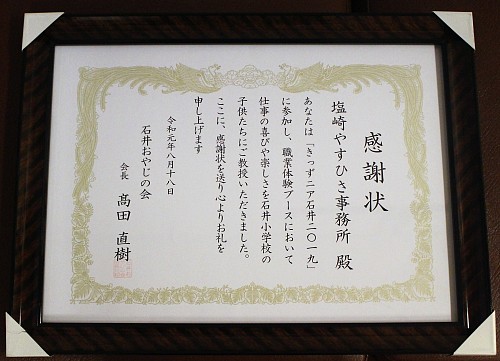 感謝状
塩崎やすひさ事務所 殿
あなたは「きっずニア石井二〇一九」
に参加し、職業体験ブースにおいて
仕事の喜びや楽しさを石井小学校の
子供たちにご教授いただきました。
ここに、感謝状を送り心よりお礼を
申し上げます
令和元年八月十八日
石井おやじの会
会長 髙田 直樹